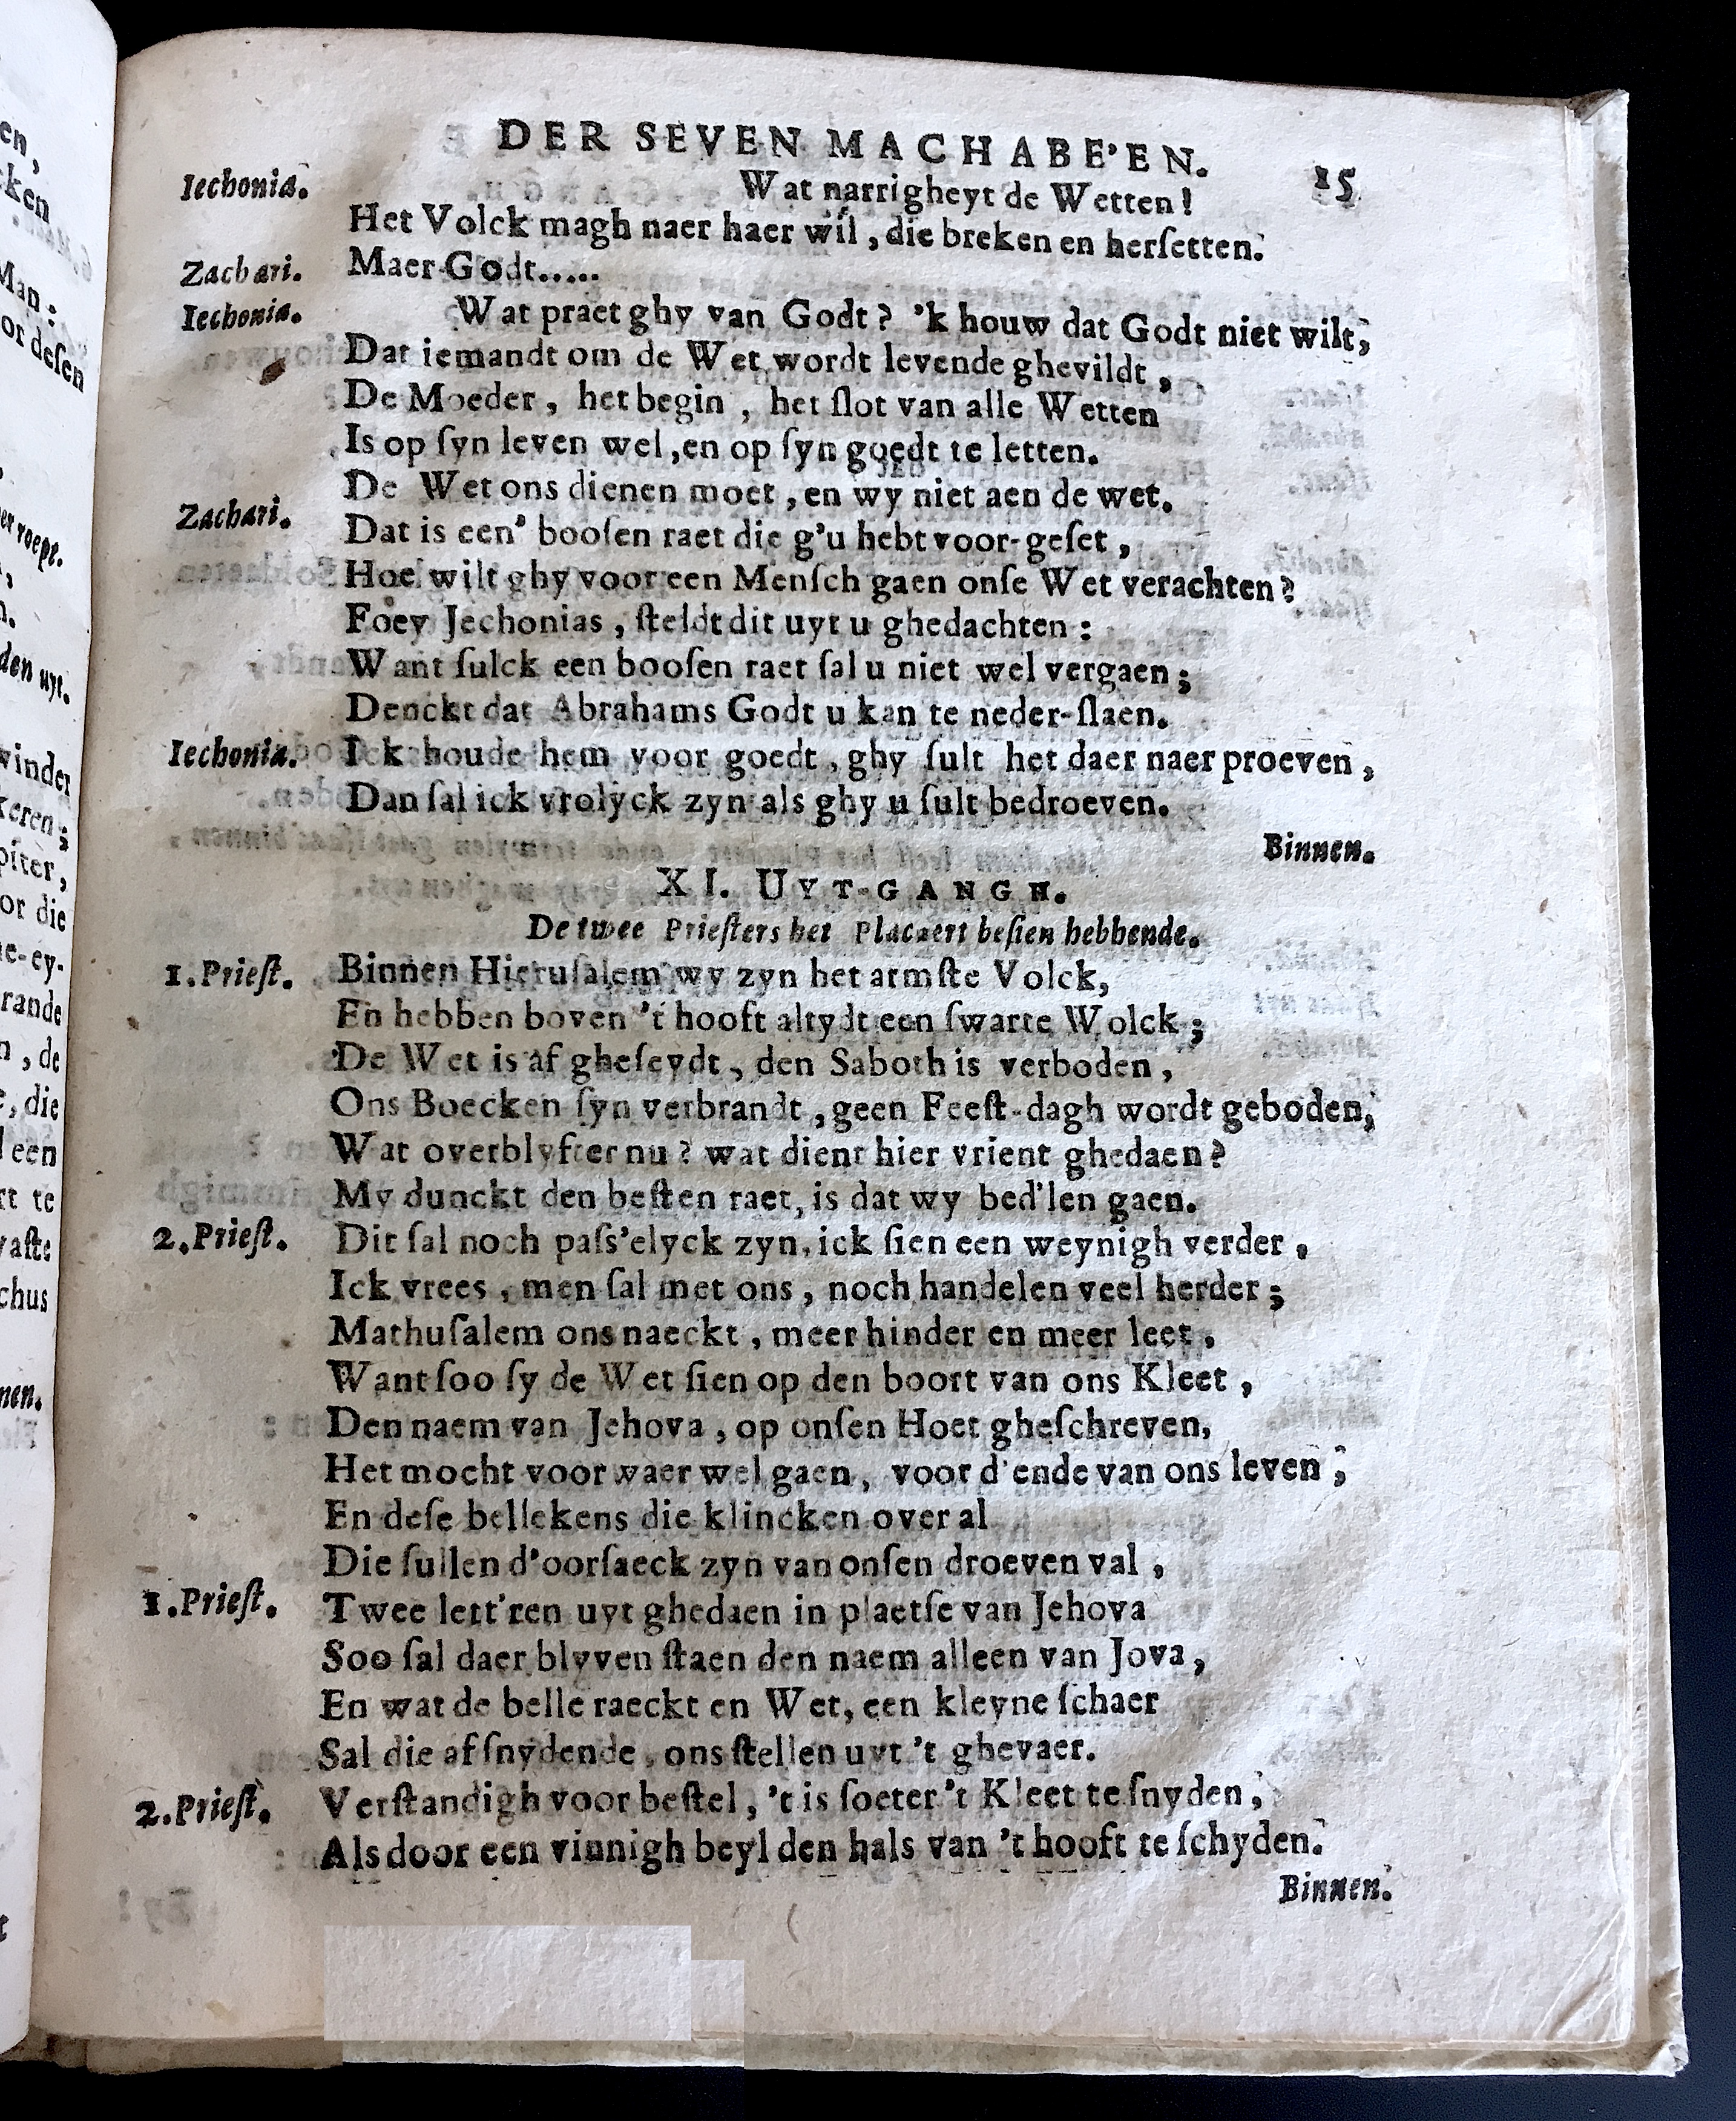 DER SEVEN MACHABE'EN. 15
Iechonia. Wat narrigheyt de Wetten!
Het Volck magh naer haer wil, die breken en herſetten.
Zachari. Maer Godt.....
Iechonia. Wat praet ghy van Godt? 'k houw dat Godt niet wilt,
Dat iemandt om de Wet wordt levende ghevildt,
De Moeder, het begin, het ſlot van alle Wetten
Is op ſyn leven wel, en op ſyn goedt te letten.
De Wet ons dienen moet, en wy niet aen de wet.
Zachari. Dat is een' booſen raet die g'u hebt voor-geſet,
Hoe wilt ghy voor een Menſch gaen onſe Wet verachten?
Foey Jechonias, ſteldt dit uyt u ghedachten:
Want ſulck een booſen raet ſal u niet wel vergaen;
Denckt dat Abrahams Godt u kan te neder-ſlaen.
Iechonia. Ick houde hem voor goedt, ghy ſult het daer naer proeven,
Dan ſal ick vrolyck zyn als ghy u ſult bedroeven.
Binnen.
XI. UYT-GANGH.
De twee Prieſters het Placaert beſien hebbende.
1. Prieſt. Binnen Hieruſalem wy zyn het armſte Volck,
En hebben boven 't hooft altydt een ſwarte Wolck;
De Wet is af gheſeydt, den Saboth is verboden,
Ons Boecken ſyn verbrandt, geen Feeſt-dagh wordt geboden,
Wat overblyfter nu? wat dient hier vrient ghedaen?
My dunckt den beſten raet, is dat wy bed'len gaen.
2. Prieſt. Dit ſal noch paſs'elyck zyn, ick ſien een weynigh verder,
Ick vrees, men ſal met ons, noch handelen veel herder;
Mathuſalem ons naeckt, meer hinder en meer leet,
Want ſoo ſy de Wet ſien op den boort van ons Kleet,
Den naem van Jehova, op onſen Hoet gheſchreven,
Het mocht voorwaer wel gaen, voor d'ende van ons leven;
En deſe bellekens die klincken over al
Die ſullen d'oorſaeck zyn van onſen droeven val,
1. Prieſt. Twee lett'ren uyt ghedaen in plaetſe van Jehova
Soo ſal daer blyven ſtaen den naem alleen van Jova,
En wat de belle raeckt en Wet, een kleyne ſchaer
Sal die af ſnydende, ons ſtellen uyt 't ghevaer.
2. Prieſt. Verſtandigh voor beſtel, 't is ſoeter 't Kleet te ſnyden,
Als door een vinnigh beyl den hals van 't hooft te ſchyden.
Binnen.